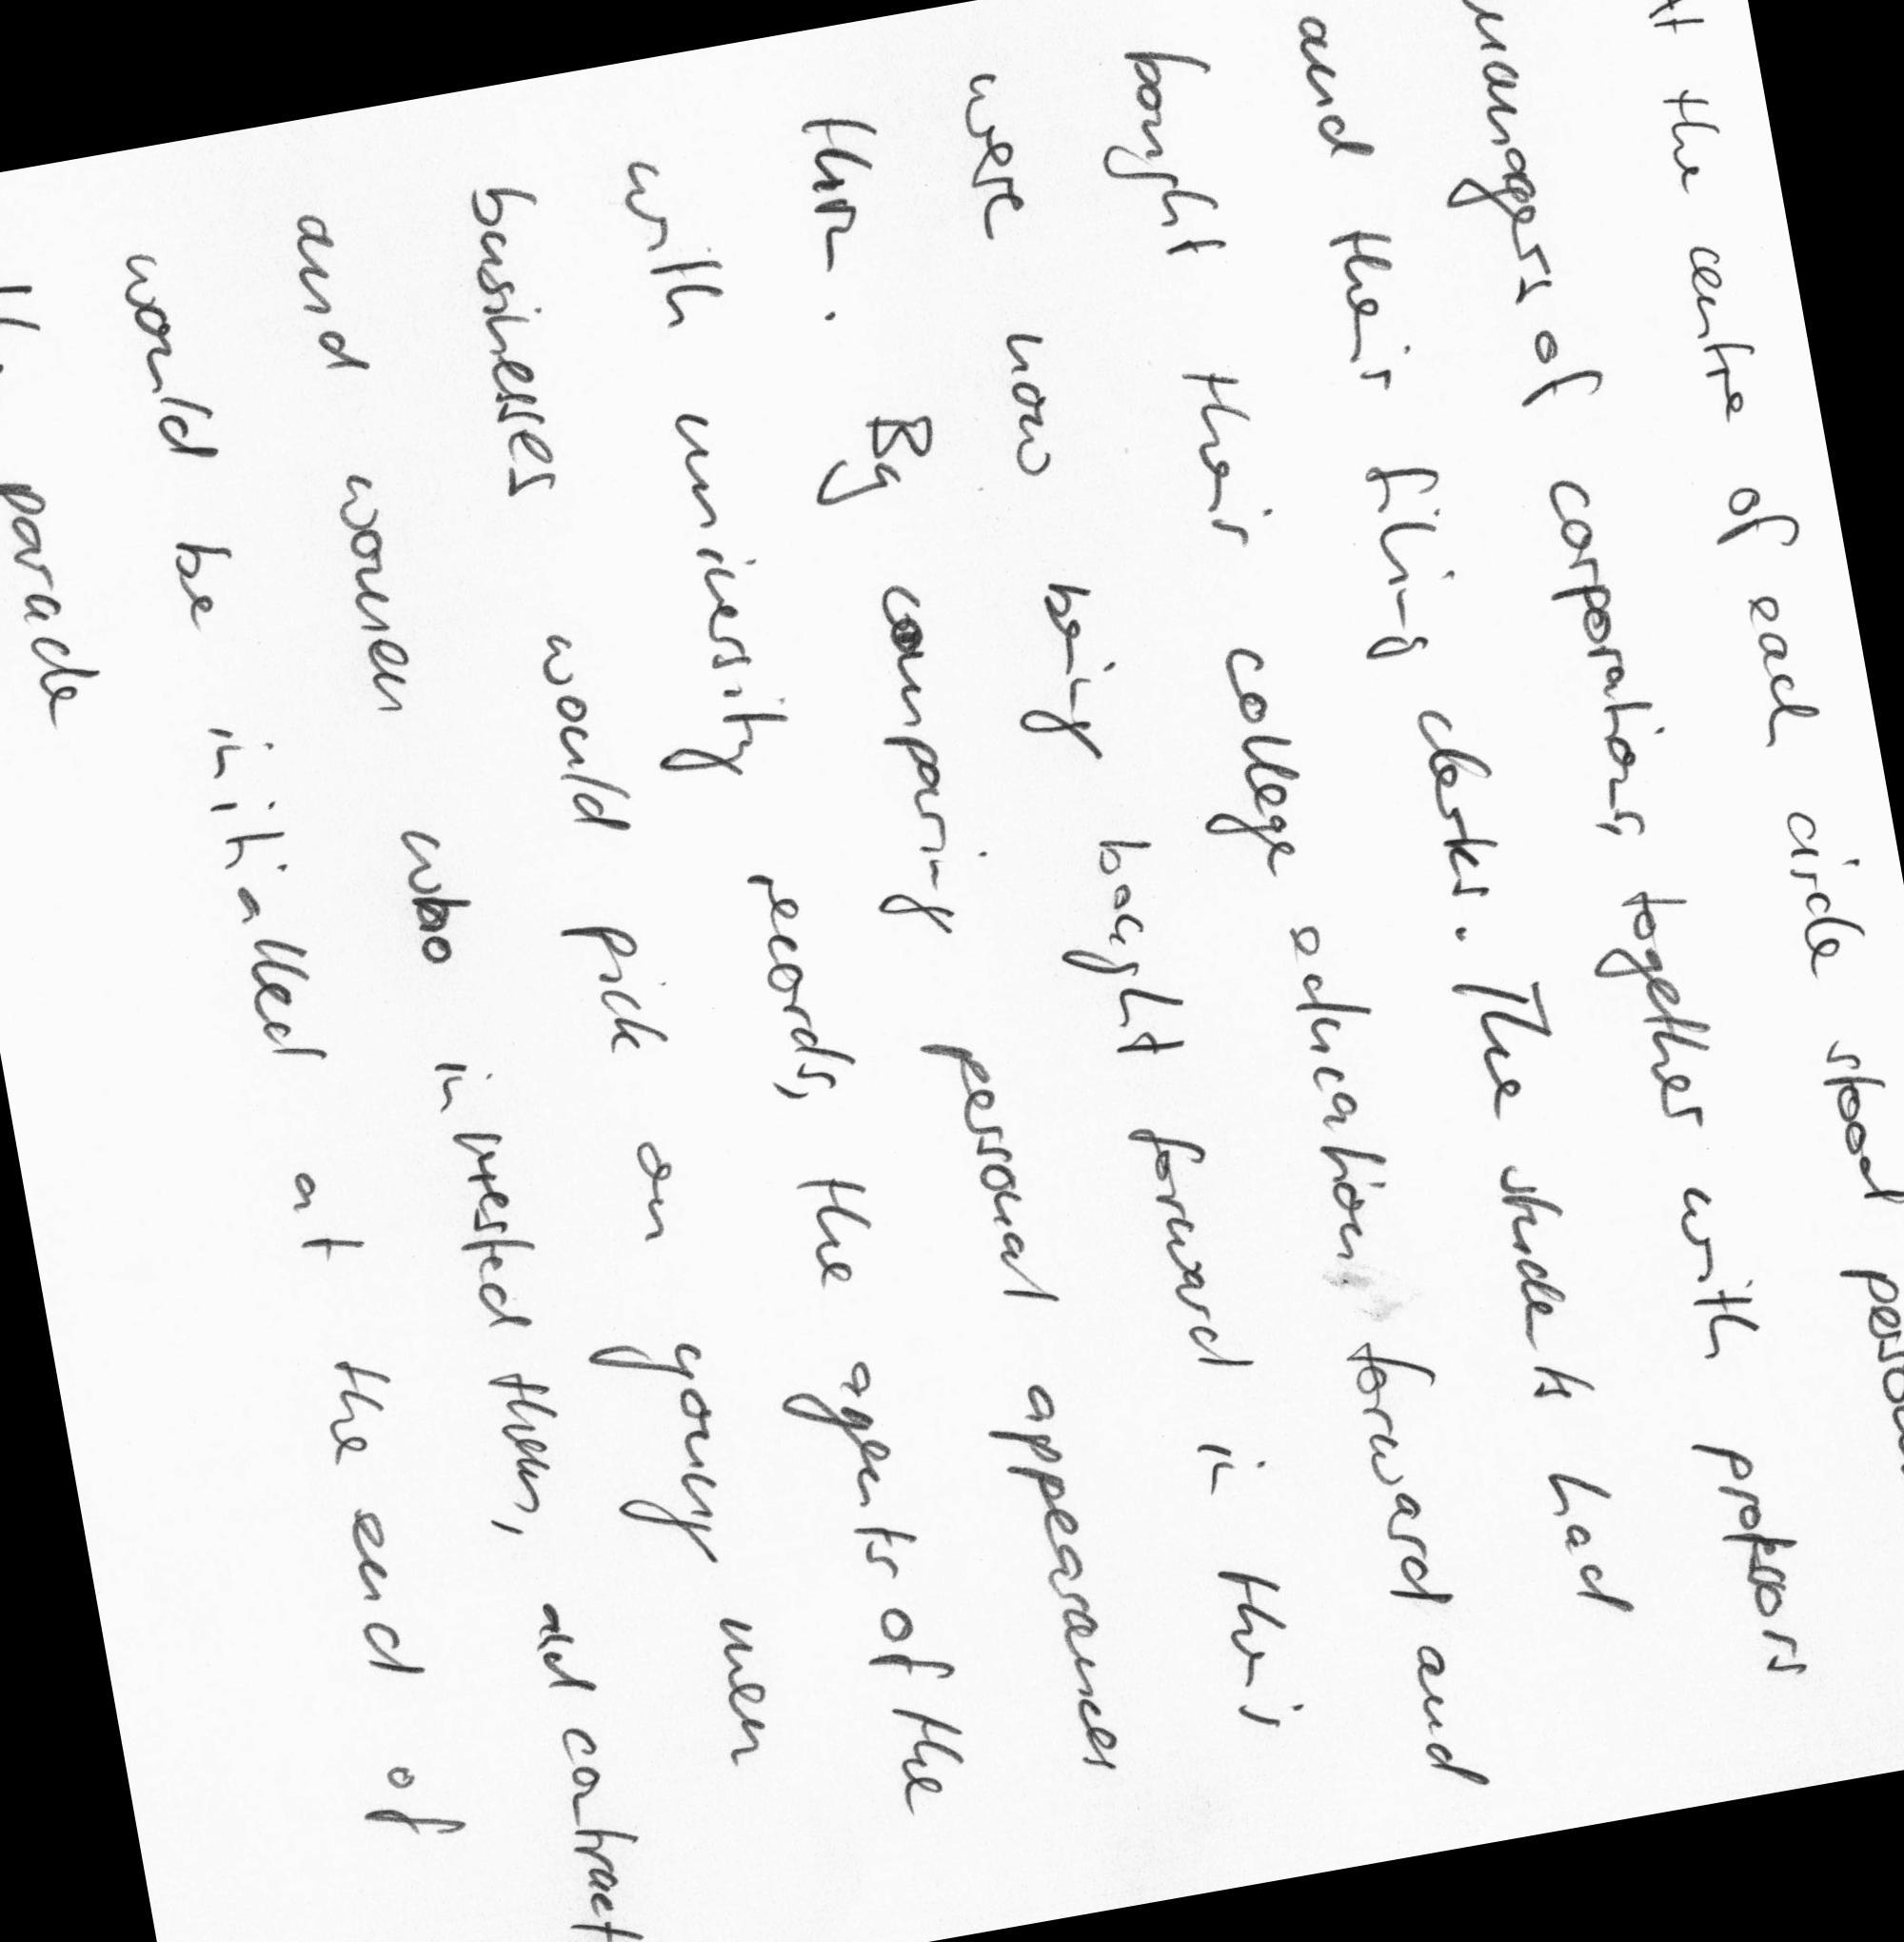 At the centre of each circle stood person
managers of corporations, together with professors
and their filing clerks. The students had
bought their college education forward and
were now being bought forward in their
turn. By comparing personal appearances
with university records, the agents of the
businesses would pick on young men
and women who interested them, and contract
would be initialled at the end of
the parade